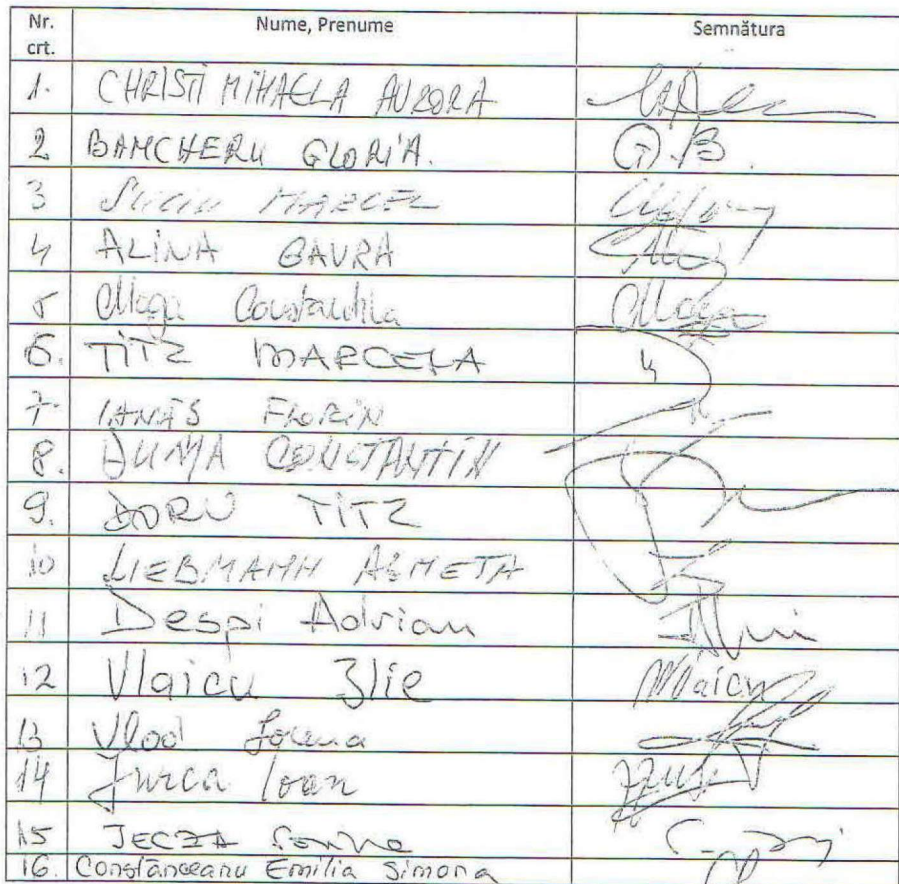 Nr. crt. Nume, Prenume Semnătura
1. CHRISTI MIHAELA AURORA
2 BANCHERU GLORIA. G.B.
3 MARCEL
4 ALINA GAVRA
5 Moga Constantina Moga
6. TITZ MARCELA
7. IANĂS FLORIN
8. DUMA CONSTANTIN
9. DORU TITZ
10 LIEBMANN AGNETA
11 Despi Adrian
12 Vlaicu Ilie Vlaicu
13 Vlad
14 Jurca Ioan
15 JECZA
16. Constănceanu Emilia Simona